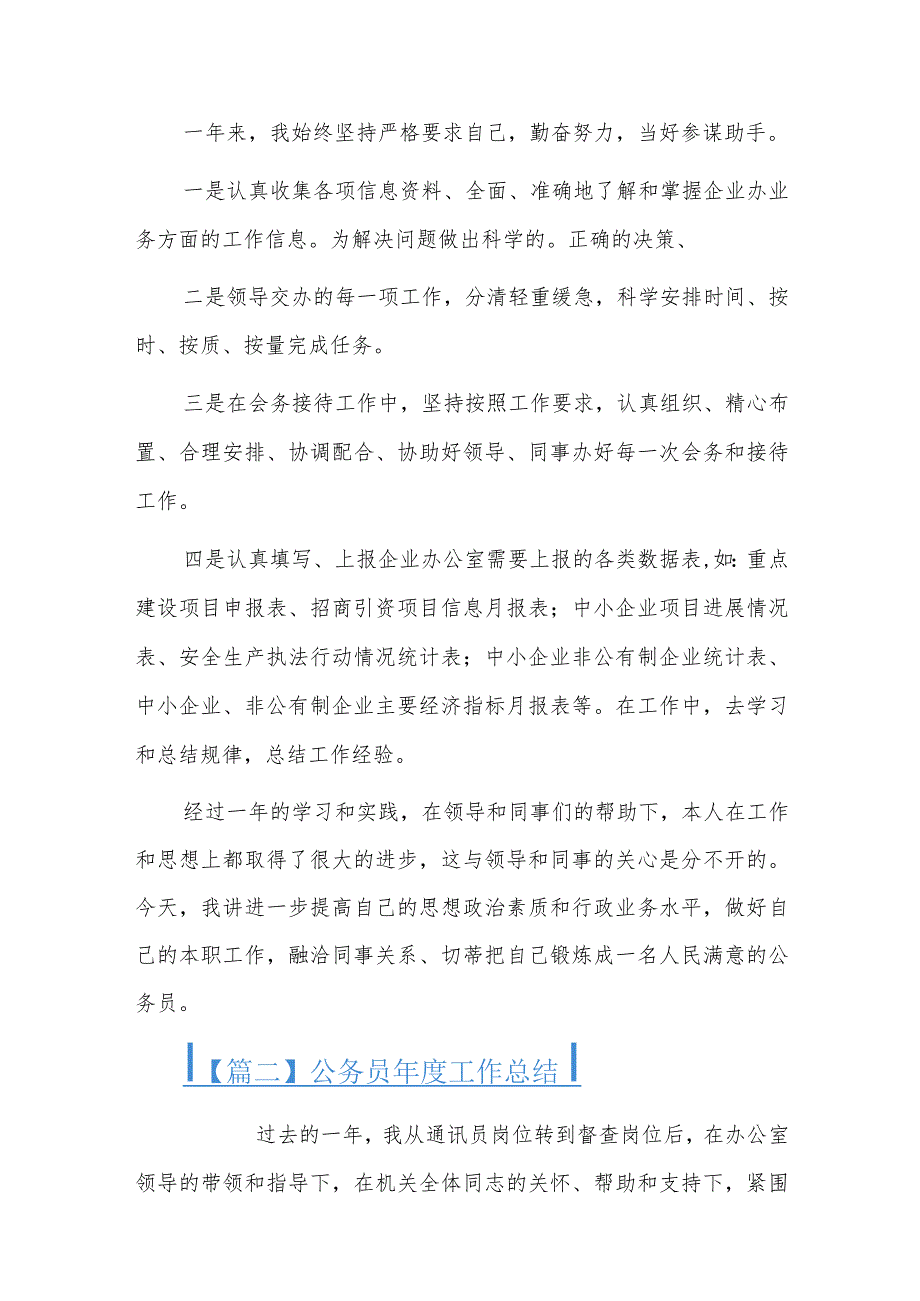 一年来，我始终坚持严格要求自己，勤奋努力，当好参谋助手。
一是认真收集各项信息资料、全面、准确地了解和掌握企业办业
务方面的工作信息。为解决问题做出科学的。正确的决策、
二是领导交办的每一项工作，分清轻重缓急，科学安排时间、按
时、按质、按量完成任务。
三是在会务接待工作中，坚持按照工作要求，认真组织、精心布
置、合理安排、协调配合、协助好领导、同事办好每一次会务和接待
工作。
四是认真填写、上报企业办公室需要上报的各类数据表,如:重点
建设项目申报表、招商引资项目信息月报表；中小企业项目进展情况
表、安全生产执法行动情况统计表；中小企业非公有制企业统计表、
中小企业、非公有制企业主要经济指标月报表等。在工作中，去学习
和总结规律，总结工作经验。
经过一年的学习和实践，在领导和同事们的帮助下，本人在工作
和思想上都取得了很大的进步，这与领导和同事的关心是分不开的。
今天，我讲进一步提高自己的思想政治素质和行政业务水平，做好自
己的本职工作，融洽同事关系、切蒂把自己锻炼成一名人民满意的公
务员。
【篇二】公务员年度工作总结
过去的一年，我从通讯员岗位转到督查岗位后，在办公室
领导的带领和指导下，在机关全体同志的关怀、帮助和支持下，紧围